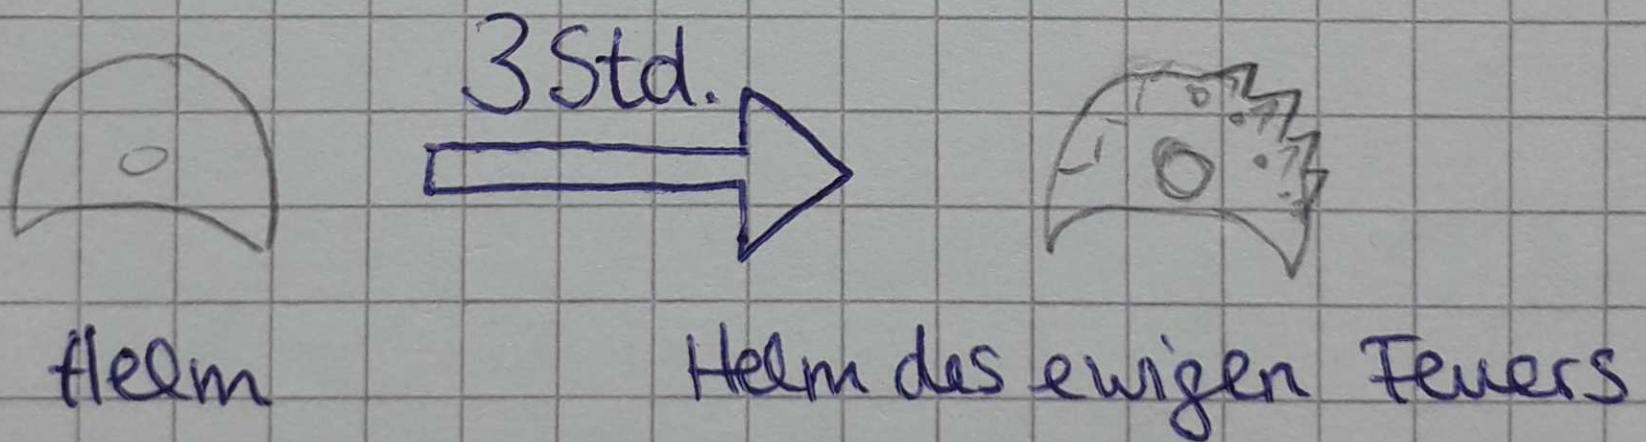 3 Std.
Helm
Helm des ewigen Feuers